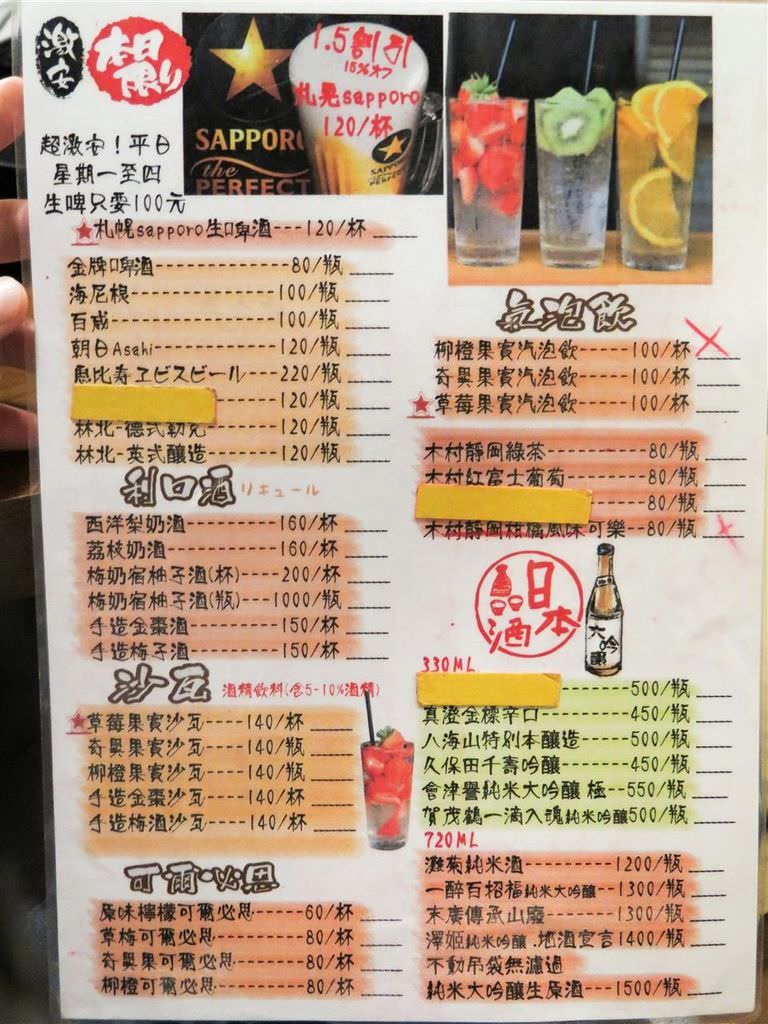 激安
本日限り
SAPPORO
the
PERFECT
1.5割引
15%オフ
札晃sapporo
120/杯
SAPPORO
超激安！平日
星期一至四
生啤只要100元
札幌sapporo生啤酒---120/杯
金牌啤酒---80/瓶
海尼根---100/瓶
百威---100/瓶
朝日Asahi---120/瓶
惠比寿ヱビスビール---220/瓶
---120/瓶
林北-德式勒克---120/瓶
林北-英式釀造---120/瓶
利口酒 リキュール
西洋梨奶酒---160/杯
荔枝奶酒---160/杯
梅奶宿柚子酒(杯)---200/杯
梅奶宿柚子酒(瓶)---1000/瓶
手造金棗酒---150/杯
手造梅子酒---150/杯
沙瓦 酒精飲料(含5-10%酒精)
草莓果實沙瓦---140/杯
奇異果實沙瓦---140/瓶
柳橙果實沙瓦---140/瓶
手造金棗沙瓦---140/杯
手造梅酒沙瓦---140/杯
可爾必思
原味檸檬可爾必思---60/杯
草梅可爾必思---80/杯
奇異果可爾必思---80/杯
柳橙可爾必思---80/杯
氣泡飲
柳橙果實汽泡飲---100/杯
奇異果實汽泡飲---100/杯
草莓果實汽泡飲---100/杯
木村靜岡綠茶---80/瓶
木村紅富士葡萄---80/瓶
---80/瓶
木村靜岡柑橘風味可樂--80/瓶
日本酒
大吟釀
330ML
---500/瓶
真澄金標辛口---450/瓶
八海山特別本釀造---500/瓶
久保田千壽吟釀---450/瓶
會津譽純米大吟釀 極--550/瓶
賀茂鶴一滴入魂純米吟釀500/瓶
720ML
灘菊純米酒---1200/瓶
一醉百招福純米大吟釀--1300/瓶
末廣傳承山廢---1300/瓶
澤姬純米吟釀.地酒宣言1400/瓶
不動吊袋無濾過
純米大吟釀生原酒---1500/瓶